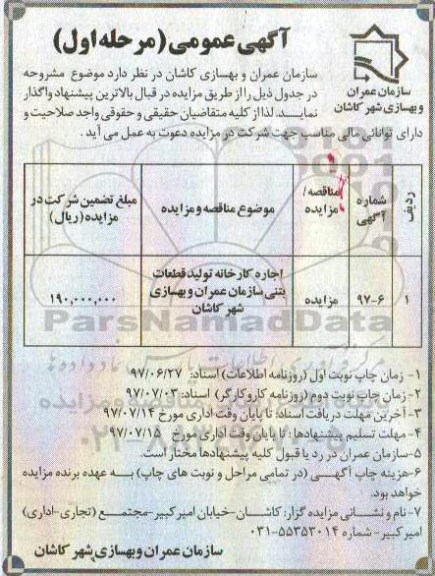 آگهی عمومی (مرحله اول)
سازمان عمران
و بهسازی شهر کاشان
سازمان عمران و بهسازی کاشان در نظر دارد موضوع مشروحه
در جدول ذیل را از طریق مزایده در قبال بالاترین پیشنهاد واگذار
نماید. لذا از کلیه متقاضیان حقیقی و حقوقی واجد صلاحیت و
دارای توانائی مالی مناسب جهت شرکت در مزایده دعوت به عمل می آید.
ردیف شماره آگهی مناقصه/مزایده موضوع مناقصه و مزایده مبلغ تضمین شرکت در مزایده (ریال)
۱ ۹۷-۶ مزایده اجاره کارخانه تولید قطعات بتنی سازمان عمران و بهسازی شهر کاشان ۱۹۰,۰۰۰,۰۰۰
ParsNamadData
۱- زمان چاپ نوبت اول (روزنامه اطلاعات) اسناد: ۹۷/۰۶/۲۷
۲- زمان چاپ نوبت دوم (روزنامه کار و کارگر) اسناد: ۹۷/۰۷/۰۳
۳- آخرین مهلت دریافت اسناد: تا پایان وقت اداری مورخ ۹۷/۰۷/۱۴
۴- مهلت تسلیم پیشنهادها: تا پایان وقت اداری مورخ ۹۷/۰۷/۱۵
۵- سازمان عمران در رد یا قبول کلیه پیشنهادها مختار است.
۶- هزینه چاپ آگهی (در تمامی مراحل و نوبت های چاپ) به عهده برنده مزایده
خواهد بود.
۷- نام و نشانی مزایده گزار: کاشان-خیابان امیرکبیر-مجتمع (تجاری-اداری)
امیرکبیر- شماره ۵۵۳۵۳۰۱۴-۰۳۱
سازمان عمران و بهسازی شهر کاشان